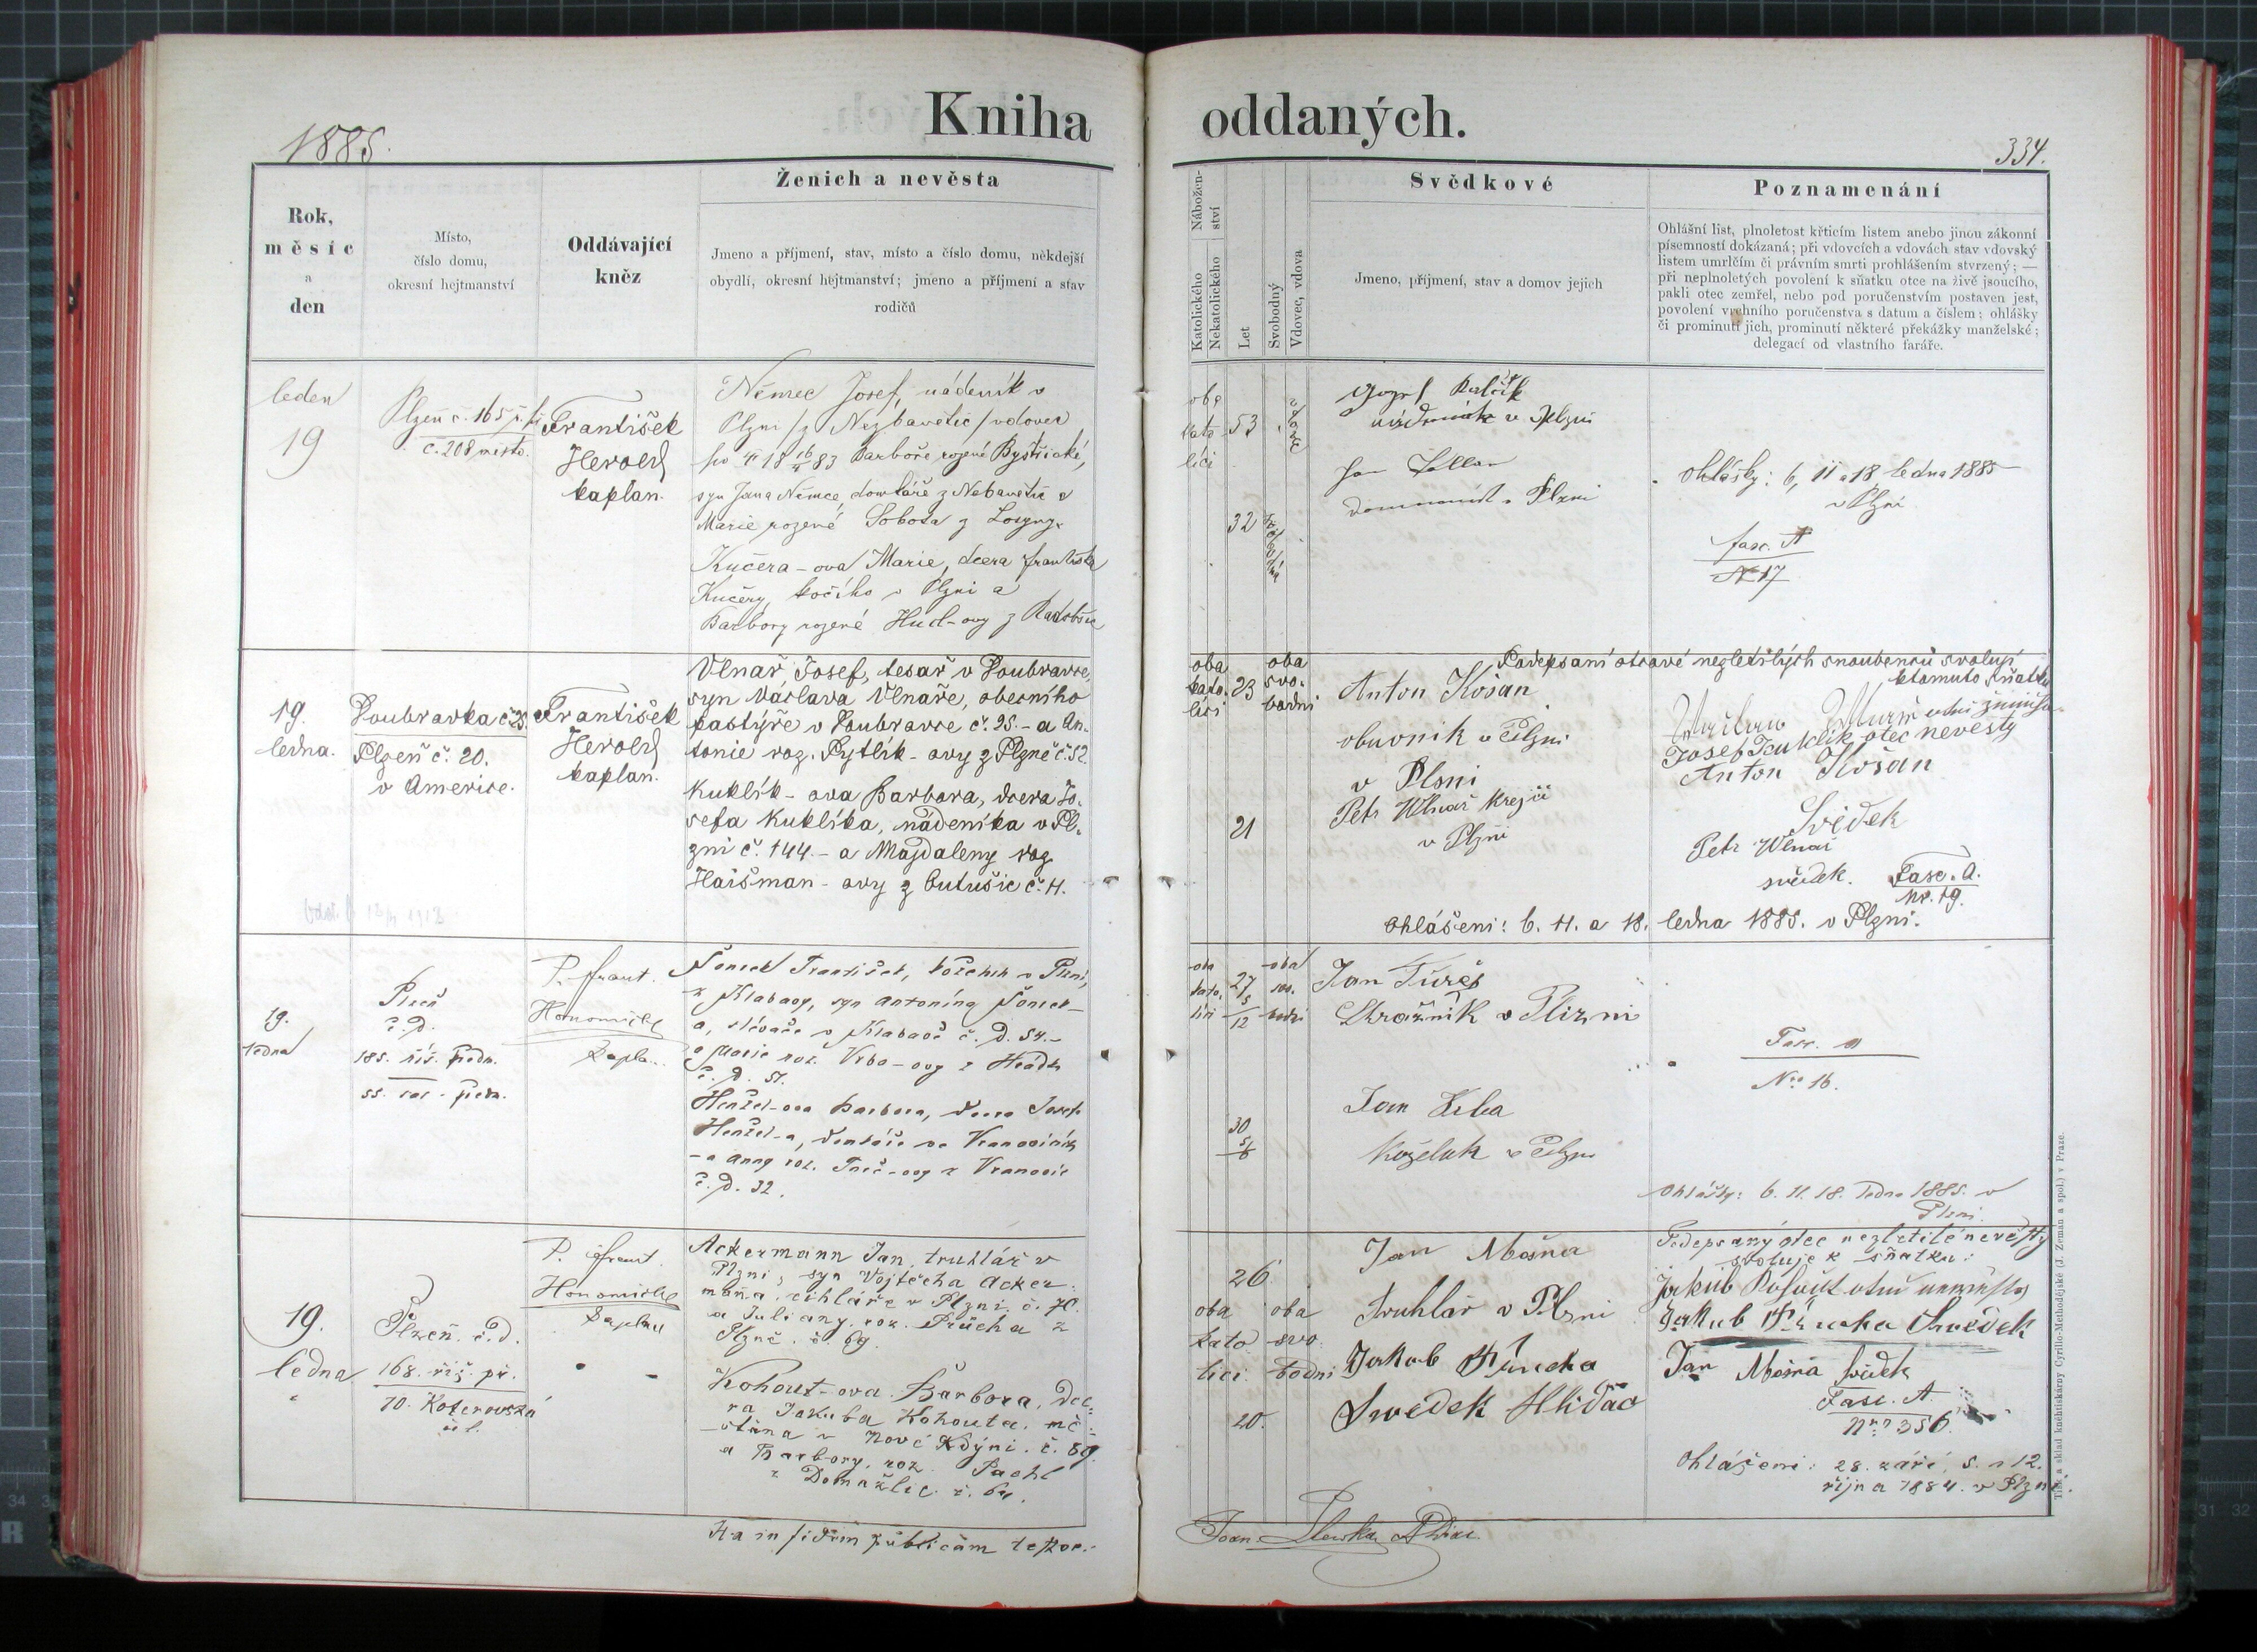 Kniha oddaných.
1885.
334.
Rok,
měsíc
a
den
Místo,
číslo domu,
okresní hejtmanství
Oddávající
kněz
Ženich a nevěsta
Jmeno a příjmení, stav, místo a číslo domu, někdejší
obydlí, okresní hejtmanství; jmeno a příjmení a stav
rodičů
Nábožen-
ství
Katolického
Nekatolického
Let
Svobodný
Vdovec, vdova
Svědkové
Jmeno, příjmení, stav a domov jejich
Poznamenání
Ohlášní list, plnoletost křticím listem anebo jinou zákonní
písemností dokázaná; při vdovcích a vdovách stav vdovský
listem umrlčím či právním smrti prohlášením stvrzený; —
při neplnoletých povolení k sňatku otce na živě jsoucího,
pakli otec zemřel, nebo pod poručenstvím postaven jest,
povolení vrchního poručenstva s datum a číslem; ohlášky
či prominutí jich, prominutí některé překážky manželské;
delegací od vlastního faráře.
leden
19
Plzeň č. 165
č. 208 město.
František
Herold
kaplan.
Němec Josef, nádeník v
Plzni /z Nezbavětic/ vdovec
po Barboře rozené Bystřické,
syn Jana Němce, domkáře z a
Marie rozené Sobota z
Kučera-ova Marie, dcera Františka
Kučery, kočího v Plzni a
Barbory rozené Hud-ovy z
oba
kato
líci
53
32
Josef
nádeník v Plzni
Jan
v Plzni
Ohlášky: 6, 11 a 18 ledna 1885
v Plzni
fasc. A
N 17
19.
ledna.
Doubravka č. 25.
Plzeň č. 20.
v Americe.
František
Herold
kaplan.
Vlnař, Josef, tesař v Doubravce,
syn Václava Vlnaře, obecního
pastýře v Doubravce č. 25 - a An-
tonie roz. Pytlík-ovy z Plzně č. 52.
Kuklík-ova Barbora, dcera Jo-
sefa Kuklíka, nádeníka v Pl-
zni č. 144. - a Magdaleny roz.
Haišman-ovy z Lutušic č. 11.
oba
kato-
líci
23
21
oba
svo-
bodni
Anton Košan
obuvník v Plzni
v Plsni
Petr Wlnař krejčí
v Plzni
Podepsaní otcové nezletilých snoubenců svolují
ktomuto sňatku
Josef Kuklik otec nevesty
Anton Košan
Svědek
Petr Wlnař
svědek.
Fasc. A.
Nr. 19.
Ohlášeni: 6. 11. a 18. ledna 1885. v Plzni.
19.
ledna
Plzeň
č. d.
185. říš. předm.
55. předm.
P. Frant.
Honomichl
kapla..
František, v Plzni,
z Klabavy, syn Antonína
a, slévače v Klabavě č. d. 54. -
a Marie roz. Vrba-ovy z
č. d. 51.
Henžel-ova Barbora, dcera Josefa
Henžel-a, domkáře ve
- a Anny roz. z Vranovic
č. d. 32.
oba
kato.
líci
27
5/12
30
oba
svo.
bodni
Jan Tureš
Stražnik v Plizni
Jan
Koželuh v Plzni
Fasc. A
Nro 16.
Ohlášky: 6. 11. 18. ledna 1885. v
Plzni.
19.
ledna
Plzeň. č. d.
168. říš. př.
70. Koterovská
ul.
P. Frant.
Honomichl
kaplan
Ackermann Jan, truhlář v
Plzni, syn Vojtěcha Acker-
manna, cihláře v Plzni, č. 70.
a Juliany, roz. Průcha z
Plzně. č. 69.
Kohout-ova Barbora, dce-
ra Jakuba Kohouta, mě-
šťana v Nové Kdýni. č. 89.
a Barbory, roz. Pachl
z Domažlic. č. 64.
26
20.
oba
kato
líci
oba
svo
bodni
Jan Mašna
Truhlář v Plzni
Jakub Průcha
Svědek Hlídač
Podepsaný otec nezletilé nevěsty
svoluje k sňatku:
Jakub Kohout otec nevěsty
Jakub Průcha Svědek
Jan Mašna svědek
Fasc. A.
Nro 356.
Ohlášeni: 28. září, 5. a 12.
října 1884. v Plzni.
Ita in fidem publicam testor.
Tisk a sklad kněhtiskárny Cyrillo-Methodějské (J. Zeman a spol.) v Praze.